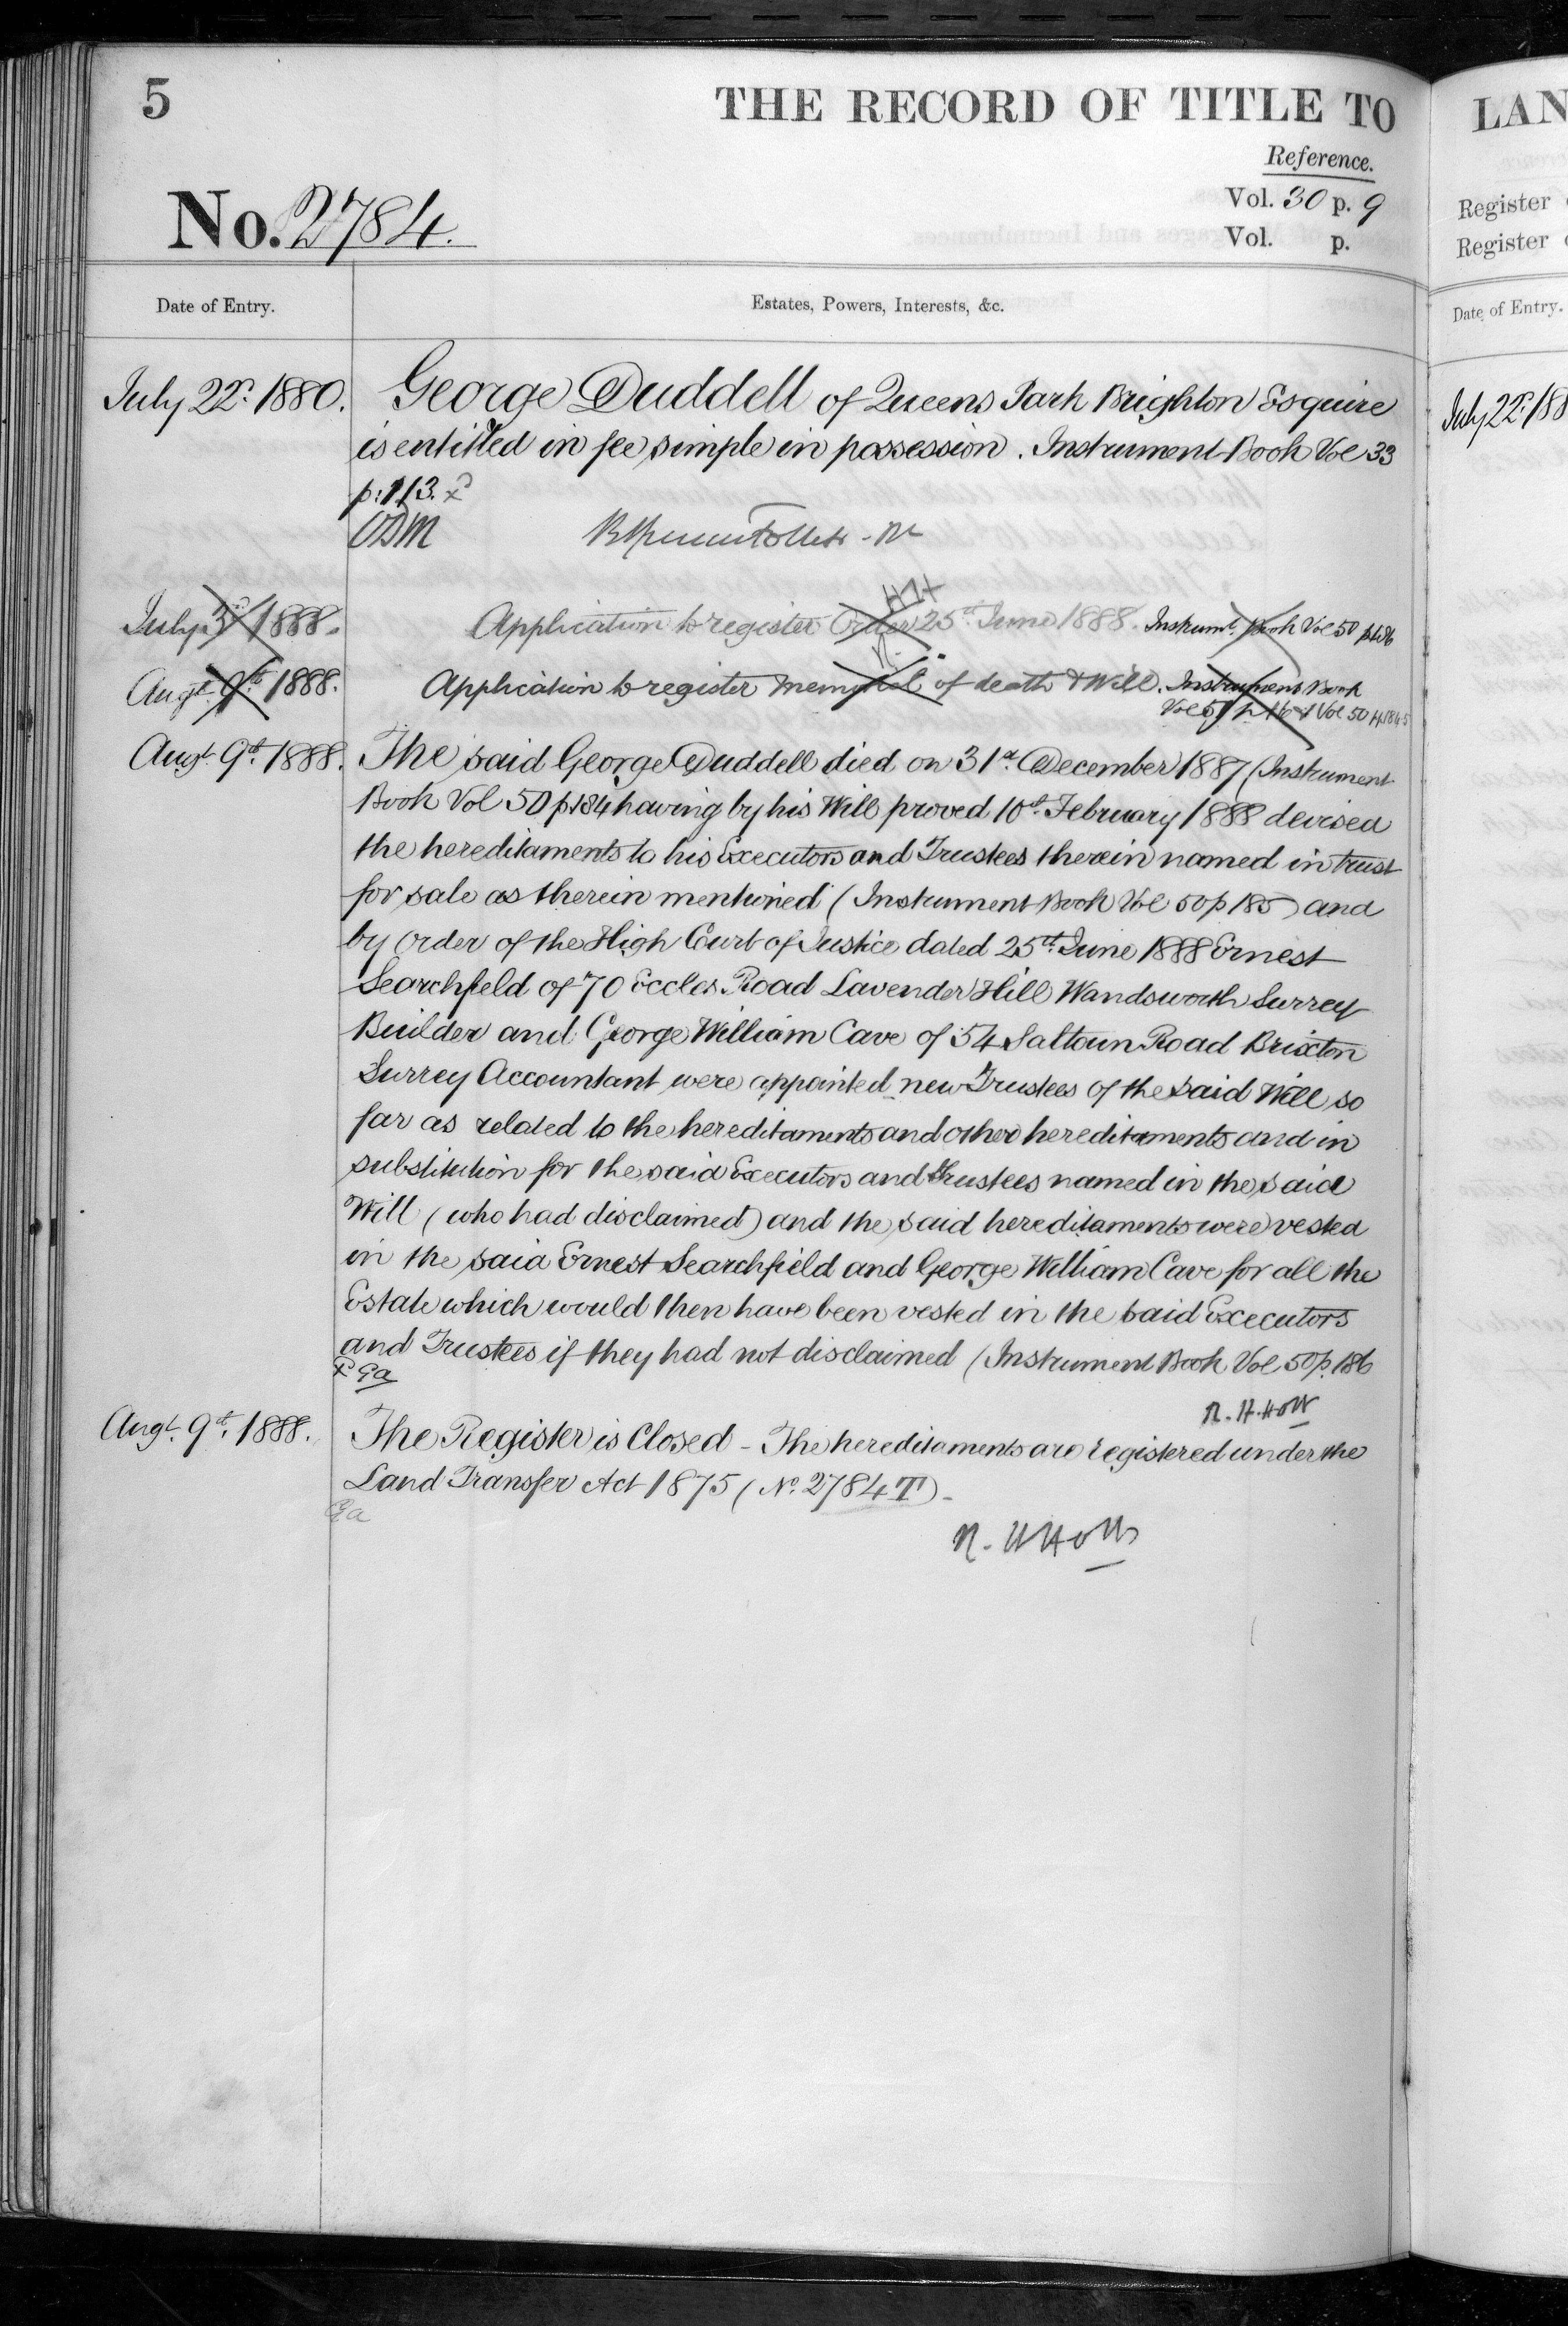 5
THE RECORD OF TITLE TO
Reference.
No. 2784.
Vol. 30 p. 9
Vol. p.
Date of Entry.
Estates, Powers, Interests, &c.
July 22d. 1880.
George Duddell of Queens Park Brighton Esquire
is entitled in fee simple in possession. Instrument Book Vol 33
p: 113.
July 3d 1888.
Application to register Order 25th June 1888. Instrumt. Book Vol 50 p186
Augt. 9th. 1888.
Application to register memorial of death & Will. Instrument Book
Vol 50
Augt. 9th. 1888.
The said George Duddell died on 31st. December 1887 (Instrument
Book Vol 50 p184 having by his Will proved 10th. February 1888 devised
the hereditaments to his Executors and Trustees therein named in trust
for sale as therein mentioned (Instrument Book Vol 50 p 185) and
by Order of the High Court of Justice dated 25th. June 1888 Ernest
Searchfield of 70 Eccles Road Lavender Hill Wandsworth Surrey
Builder and George William Cave of 54 Saltoun Road Brixton
Surrey Accountant were appointed new Trustees of the said Will so
far as related to the hereditaments and other hereditaments and in
substitution for the said Executors and trustees named in the said
Will (who had disclaimed) and the said hereditaments were vested
in the said Ernest Searchfield and George William Cave for all the
Estate which would then have been vested in the said Executors
and Trustees if they had not disclaimed (Instrument Book Vol 50 p. 186
R. H. Holt
Augt. 9th. 1888.
The Register is Closed - The hereditaments are registered under the
Land Transfer Act 1875 (No. 2784 T) -
R. H Holt
LAN
Register
Register
Date of Entry.
July 22d. 188